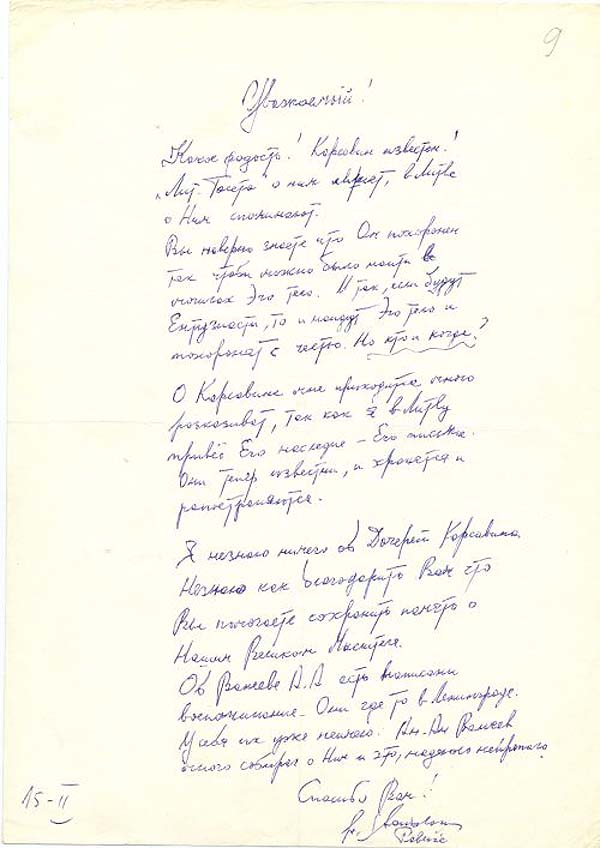 9
Уважаемый!
Какая радость! Карсавин известен!
„Лит. Газета" о нём, в Литве
о Нём споминают.
Вы наверно знаете что Он похоронен
так чтобы можно было найти в
могилах Эго тело. И так, если будут
Ентузиасти, то и найдут Эго тело и
похоронят с честью. Но кто и когда?
О Карсавине мне приходится много
розказиват, так как я в Литву
привёз Его наследие – Его письма.
Они тепер известни, и хранятся и
Я незнаю ничего об Дочерей Карсавина
Незнаю как благодарить Вам что
Вы помогаете сохранить память о
Нашим Великом Мыслителе.
Об Ванееве А.А есть написани
воспоминание – Они где то в Ленинграде.
У себя их уже неимаю. Ан-Ан Ванеев
много собирал о Нём и это, надеюсь
Спасибо Вам!
15-II